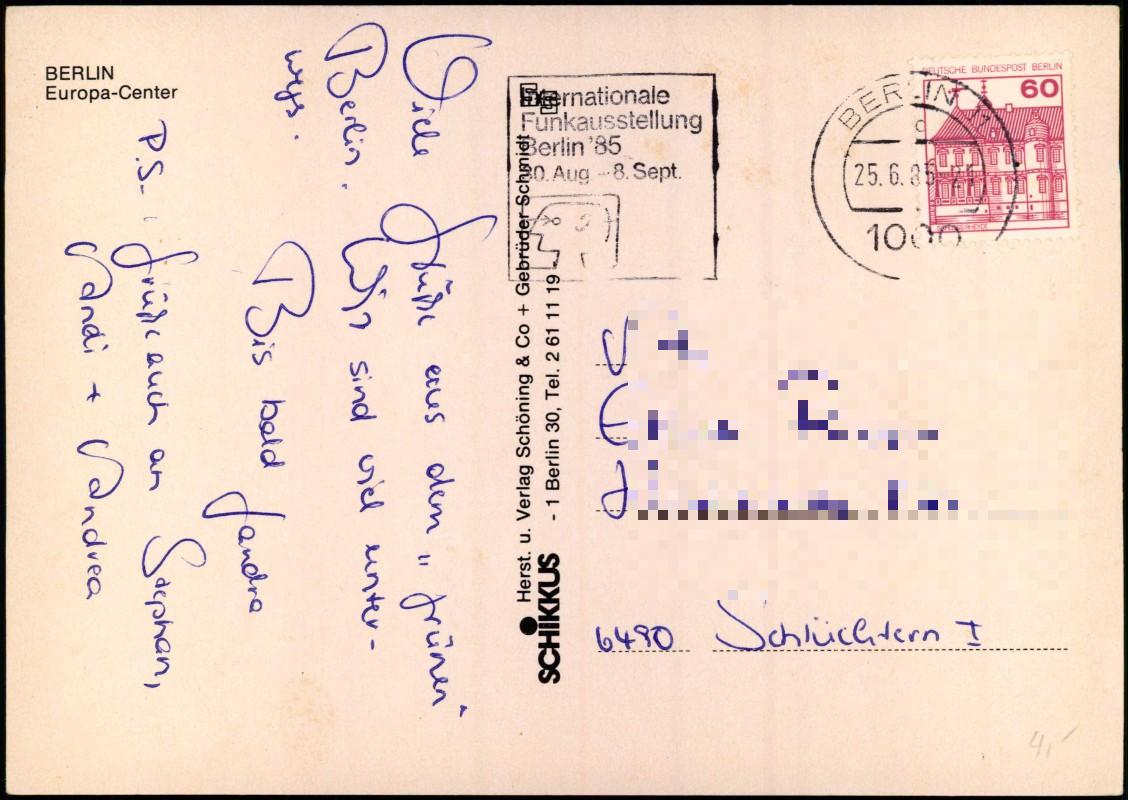 BERLIN
Europa-Center
Viele Grüße aus dem "grünen"
Berlin. Wir sind viel unter-
wegs.
Bis bald
Sandra
P.S. Grüße auch an Stephan,
Andi + Andrea
Herst. u. Verlag Schöning & Co + Gebrüder Schmidt
- 1 Berlin 30, Tel. 2 61 11 19
SCHIKKUS
Internationale
Funkausstellung
Berlin '85
30. Aug - 8. Sept.
BERLIN
25.6.85-21
1000
DEUTSCHE BUNDESPOST BERLIN
60
6490 Schlüchtern I
4,-